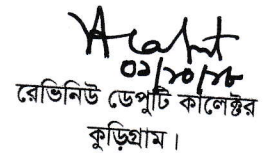 ০১/১০/১৮
রেভিনিউ ডেপুটি কালেক্টর
কুড়িগ্রাম।